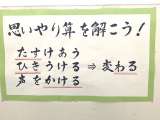 思いやり算を解こう！
たすけあう
ひきうける ⇒ 変わる
声をかける